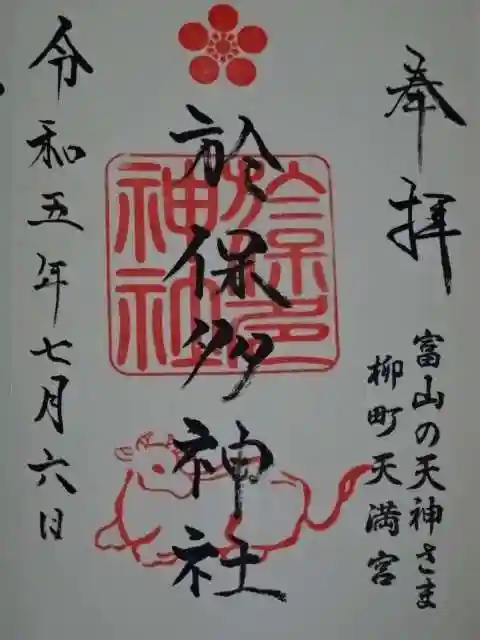 奉拝
富山の天神さま
柳町天満宮
於保多神社
於保多
神社
令和五年七月六日